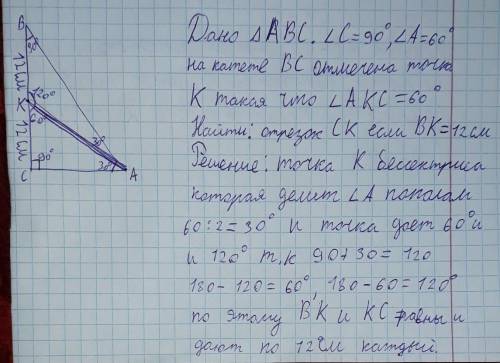 Дано △ABC. ∠C=90°, ∠A=60°
на катете BC отмечена точка
K такая что ∠AKC=60°
Найти: отрезок CK если BK=12см
Решение: точка K бессектриса
которая делит ∠A пополам
60:2=30° и точка дает 60° и
и 120° т.к 90+30=120
180-120=60°, 180-60=120°
по этому BK и KC равны и
дают по 12см каждый.
B
30°
12см
K
120°
60°
12см
C
90°
30°
30°
A